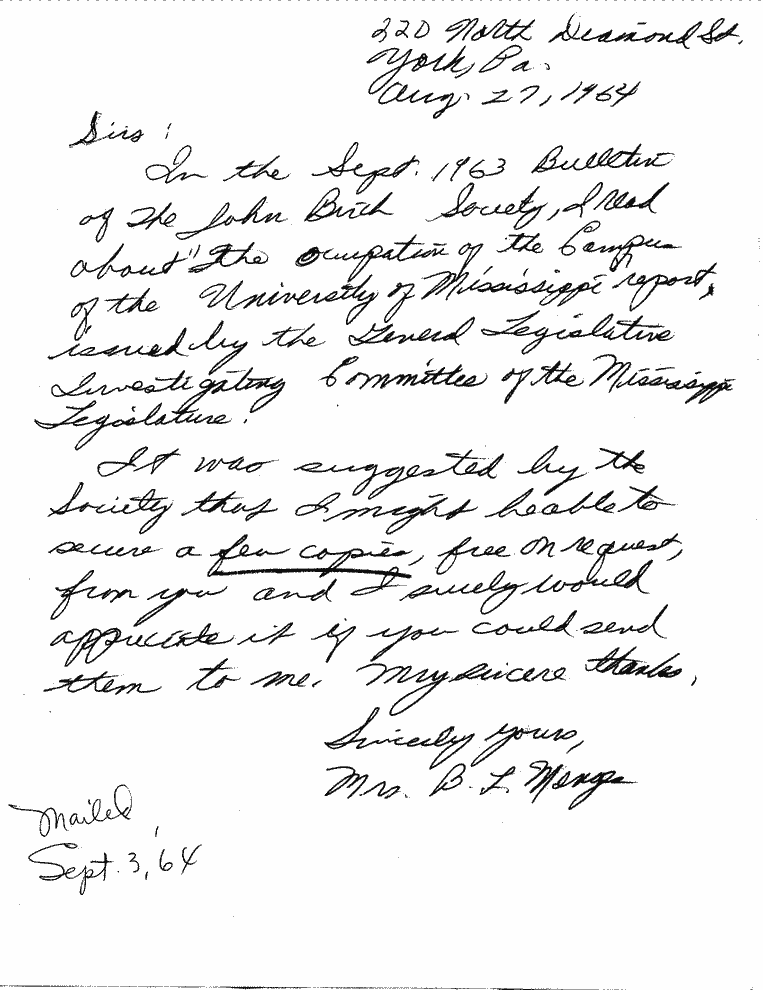 220 North Diamond St.
York, Pa.
Aug. 27, 1964
Sirs:
In the Sept. 1963 Bulletin
of The John Birch Society, I read
about "The Ocupation of the Campus
of the University of Mississippi" report,
issued by the General Legislative
Investigating Committee of the Mississippi
Legislature.
It was suggested by the
Society that I might be able to
secure a few copies, free on request,
from you and I surely would
appreciate it if you could send
them to me. My sincere thanks.
Sincerely yours,
Mrs. B. L.
Mailed
Sept. 3, 64